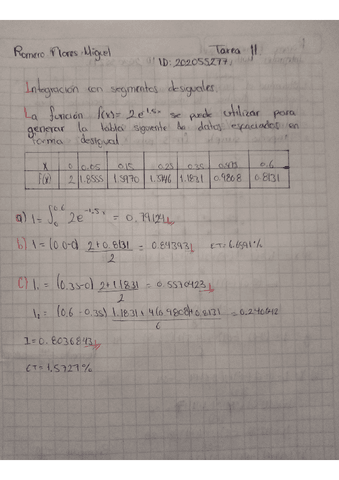 Romero Flores Miguel Tarea 11
ID: 202055277
Integración con segmentos desiguales.
La función f(x)= 2e^-1.5x se puede utilizar para
generar la tabla siguiente de datos espaciados en
forma desigual
x 0 0.05 0.15 0.25 0.35 0.475 0.6
f(x) 2 1.8555 1.5970 1.3746 1.1831 0.9808 0.8131
a) I = ∫₀^0.6 2e^-1.5x = 0.79124
b) I = (0.6-0) (2+0.8131)/2 = 0.843931 ET=6.6591%
c) I₁ = (0.35-0) (2+1.1831)/2 = 0.5570423
I₂ = (0.6-0.35) (1.1831+4(0.9808)+0.8131)/6 =
I=0.8036843
ET=1.5727%